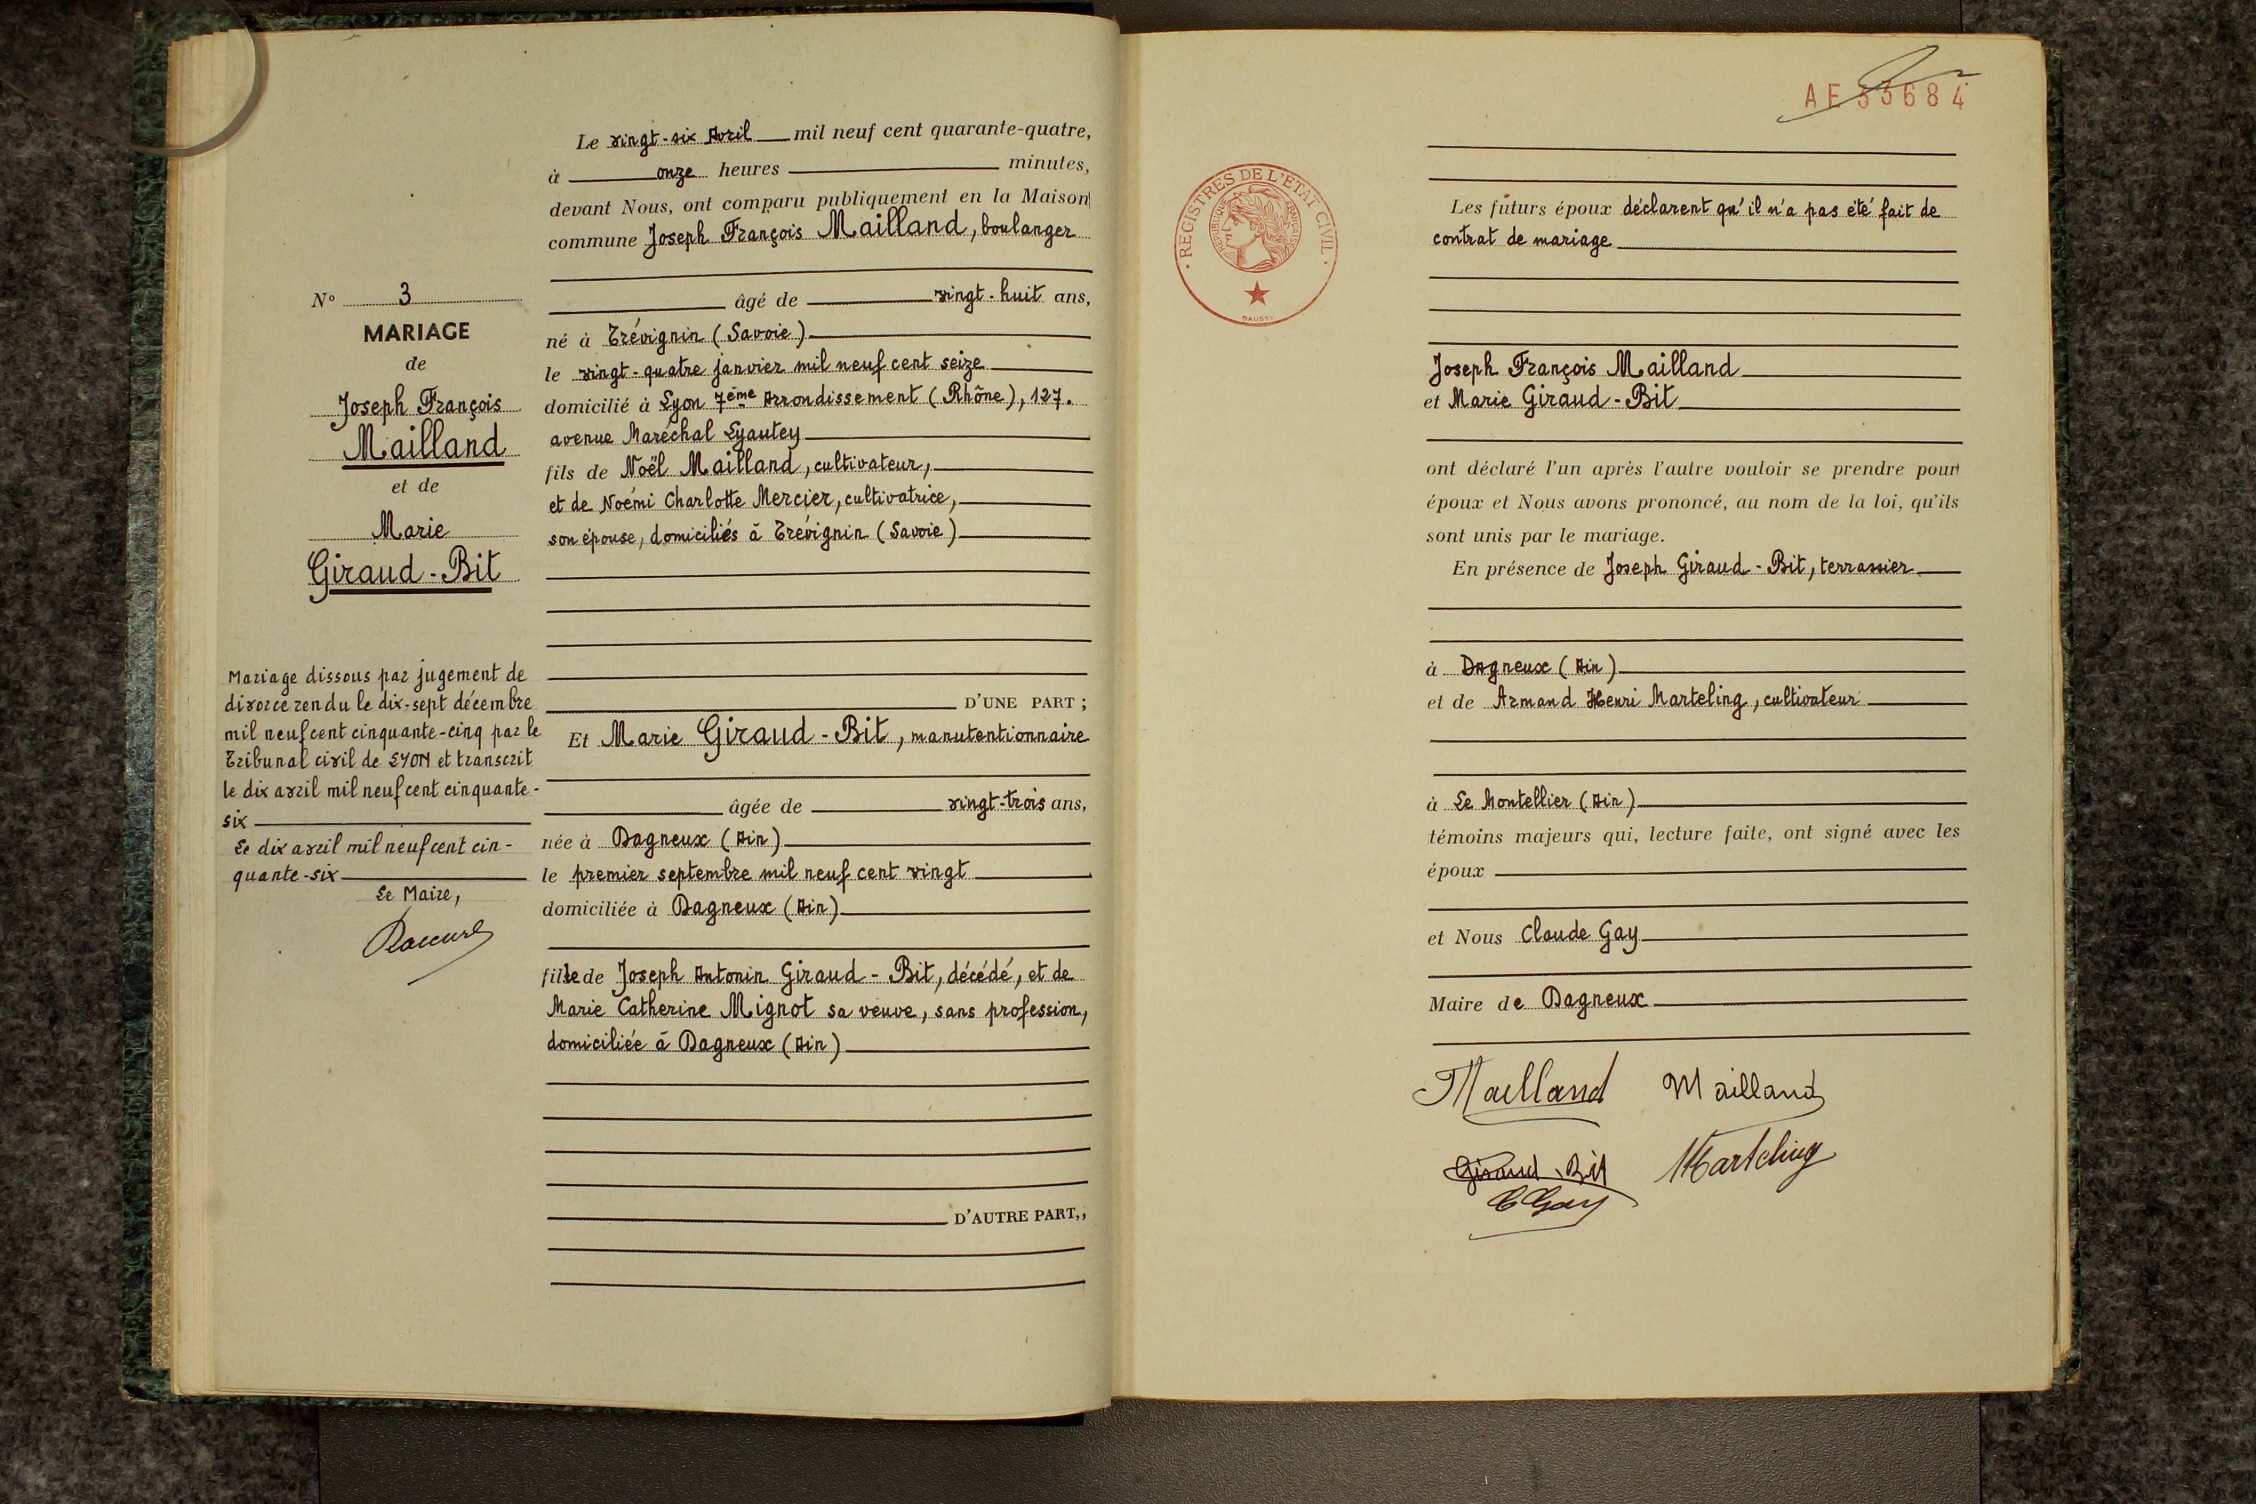 N° 3
MARIAGE
de
Joseph François
Mailland
et de
Marie
Giraud-Bit
Mariage dissous par jugement de
divorce rendu le dix-sept décembre
mil neuf cent cinquante-cinq par le
Tribunal civil de LYON et transcrit
le dix avril mil neuf cent cinquante-
six
Le dix avril mil neuf cent cin-
quante-six
Le Maire,
Le vingt-six Avril mil neuf cent quarante-quatre,
à onze heures minutes,
devant Nous, ont comparu publiquement en la Maison
commune Joseph François Mailland, boulanger
âgé de vingt-huit ans,
né à Trévignin (Savoie)
le vingt-quatre janvier mil neuf cent seize
domicilié à Lyon 7ème Arrondissement (Rhône), 127.
avenue Maréchal Lyautey
fils de Noël Mailland, cultivateur,
et de Noémi Charlotte Mercier, cultivatrice,
son épouse, domiciliés à Trévignin (Savoie)
D'UNE PART ;
Et Marie Giraud-Bit, manutentionnaire
âgée de vingt-trois ans,
née à Dagneux (Ain)
le premier septembre mil neuf cent vingt
domiciliée à Dagneux (Ain)
fille de Joseph Antonin Giraud-Bit, décédé, et de
Marie Catherine Mignot sa veuve, sans profession,
domiciliée à Dagneux (Ain)
D'AUTRE PART,,
AE 33684
REGISTRES DE L'ÉTAT CIVIL
RÉPUBLIQUE FRANÇAISE
Les futurs époux déclarent qu'il n'a pas été fait de
contrat de mariage
Joseph François Mailland
et Marie Giraud-Bit
ont déclaré l'un après l'autre vouloir se prendre pour
époux et Nous avons prononcé, au nom de la loi, qu'ils
sont unis par le mariage.
En présence de Joseph Giraud-Bit, terrassier
à Dagneux (Ain)
et de Armand Henri Marteling, cultivateur
à Le Montellier (Ain)
témoins majeurs qui, lecture faite, ont signé avec les
époux
et Nous Claude Gay
Maire de Dagneux
Mailland Mailland
Giraud-Bit Marteling
C Gay